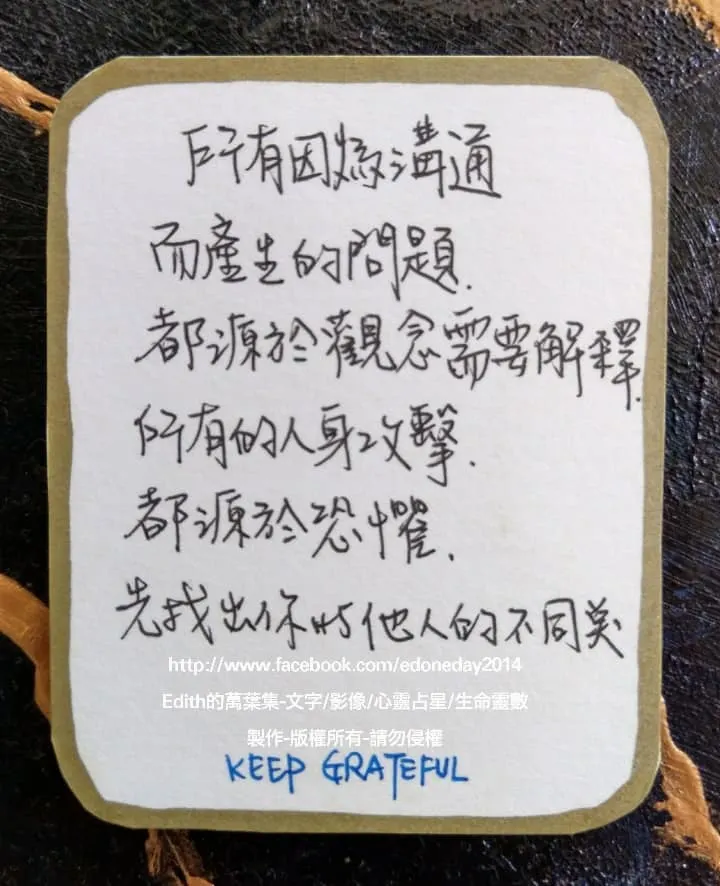 所有因為溝通
而產生的問題.
都源於觀念需要解釋.
所有的人身攻擊.
都源於恐懼.
先找出你與他人的不同美
http://www.facebook.com/edoneday2014
Edith的萬葉集-文字/影像/心靈占星/生命靈數
製作-版權所有-請勿侵權
KEEP GRATEFUL